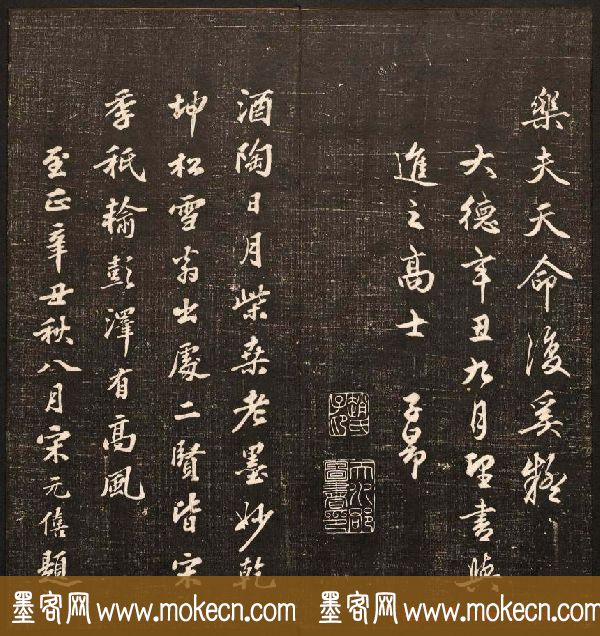 樂夫天命復奚疑
大德辛丑九月望書與
進之高士 子昂
趙氏子昂
天水郡圖書印
酒陶日月柴桑老墨妙乾
坤松雪翁出處二賢皆宋
季秖輸彭澤有高風
至正辛丑秋八月宋元僖題
墨客网 www.mokecn.com 墨客网 www.mokecn.com